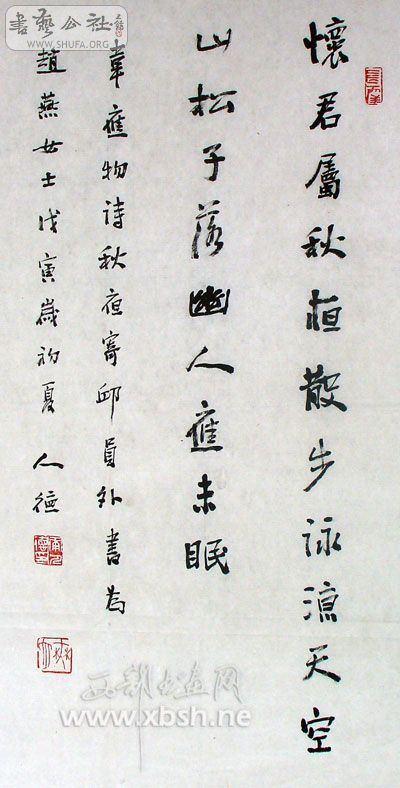 懷君屬秋夜散步詠涼天空
山松子落幽人應未眠
韋應物詩秋夜寄邱員外書為
趙燕女士戊寅歲初夏 人德
書藝公社
WWW.SHUFA.ORG
西部书画网
www.xbsh.ne